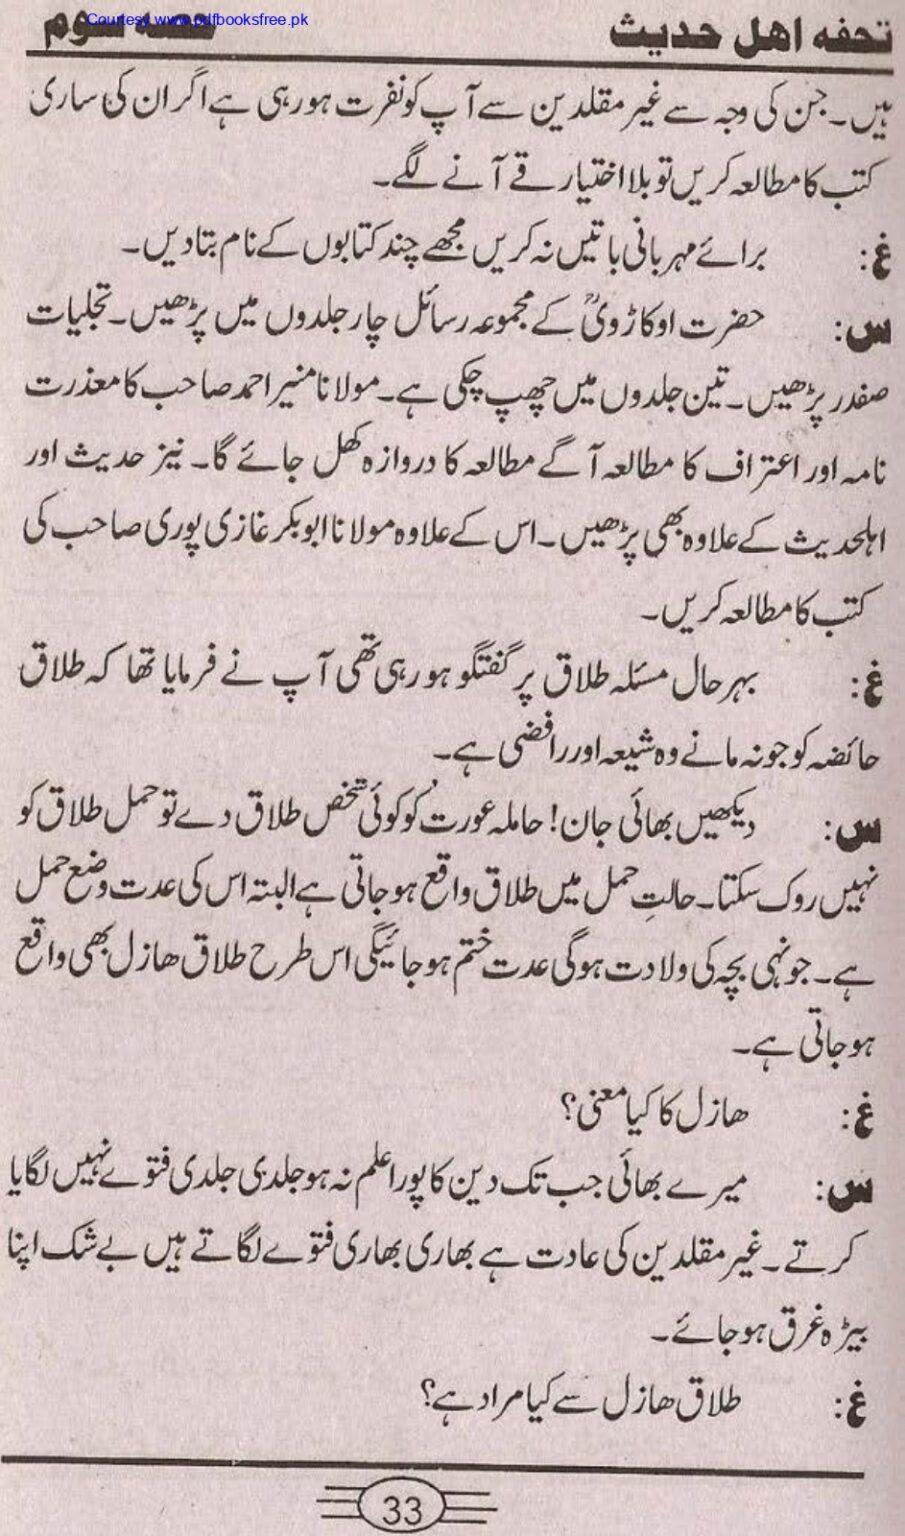 Courtesy www.pdfbooksfree.pk
تحفہ اھل حدیث حصہ سوم
ہیں۔ جن کی وجہ سے غیر مقلدین سے آپ کو نفرت ہو رہی ہے اگر ان کی ساری
کتب کا مطالعہ کریں تو بلا اختیار قے آنے لگے۔
غ: برائے مہربانی باتیں نہ کریں مجھے چند کتابوں کے نام بتا دیں۔
س: حضرت اوکاڑویؒ کے مجموعہ رسائل چار جلدوں میں پڑھیں۔ تجلیات
صفدر پڑھیں۔ تین جلدوں میں چھپ چکی ہے۔ مولانا منیر احمد صاحب کا معذرت
نامہ اور اعتراف کا مطالعہ آگے مطالعہ کا دروازہ کھل جائے گا۔ نیز حدیث اور
اہلحدیث کے علاوہ بھی پڑھیں۔ اس کے علاوہ مولانا ابوبکر غازی پوری صاحب کی
کتب کا مطالعہ کریں۔
غ: بہر حال مسئلہ طلاق پر گفتگو ہو رہی تھی آپ نے فرمایا تھا کہ طلاق
حائضہ کو جو نہ مانے وہ شیعہ اور رافضی ہے۔
س: دیکھیں بھائی جان! حاملہ عورت کو کوئی شخص طلاق دے تو حمل طلاق کو
نہیں روک سکتا۔ حالتِ حمل میں طلاق واقع ہو جاتی ہے البتہ اس کی عدت وضع حمل
ہے۔ جونہی بچہ کی ولادت ہوگی عدت ختم ہو جائیگی اس طرح طلاق ھازل بھی واقع
ہو جاتی ہے۔
غ: ھازل کا کیا معنی؟
س: میرے بھائی جب تک دین کا پورا علم نہ ہو جلدی جلدی فتوے نہیں لگایا
کرتے۔ غیر مقلدین کی عادت ہے بھاری بھاری فتوے لگاتے ہیں بے شک اپنا
بیڑہ غرق ہو جائے۔
غ: طلاق ھازل سے کیا مراد ہے؟
33